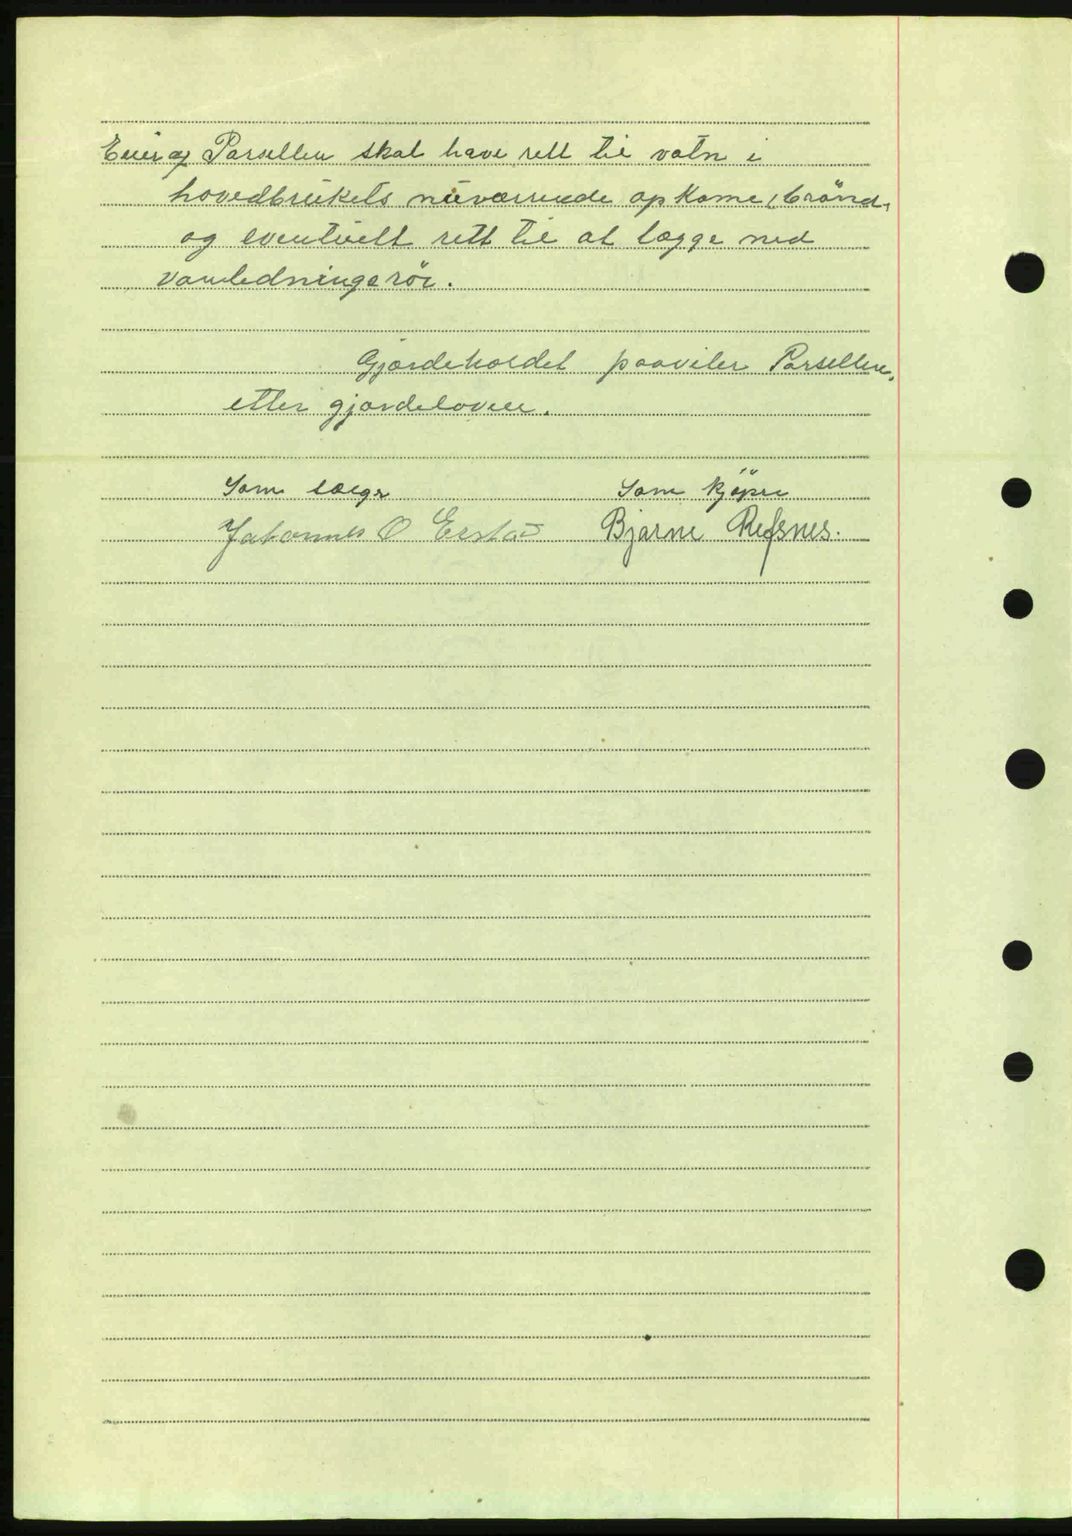 Eier af Parsellen skal have rett til vatn i
hovedbrukets nuværende opkome, brönd,
og eventuelt rett til at lægge ned
vanledningsrör.
Gjærdeholdet paaviler Parsellen,
etter gjærdeloven.
Som sælgr Som kjöper
Johannes O Erstad Bjarne Refsnes.